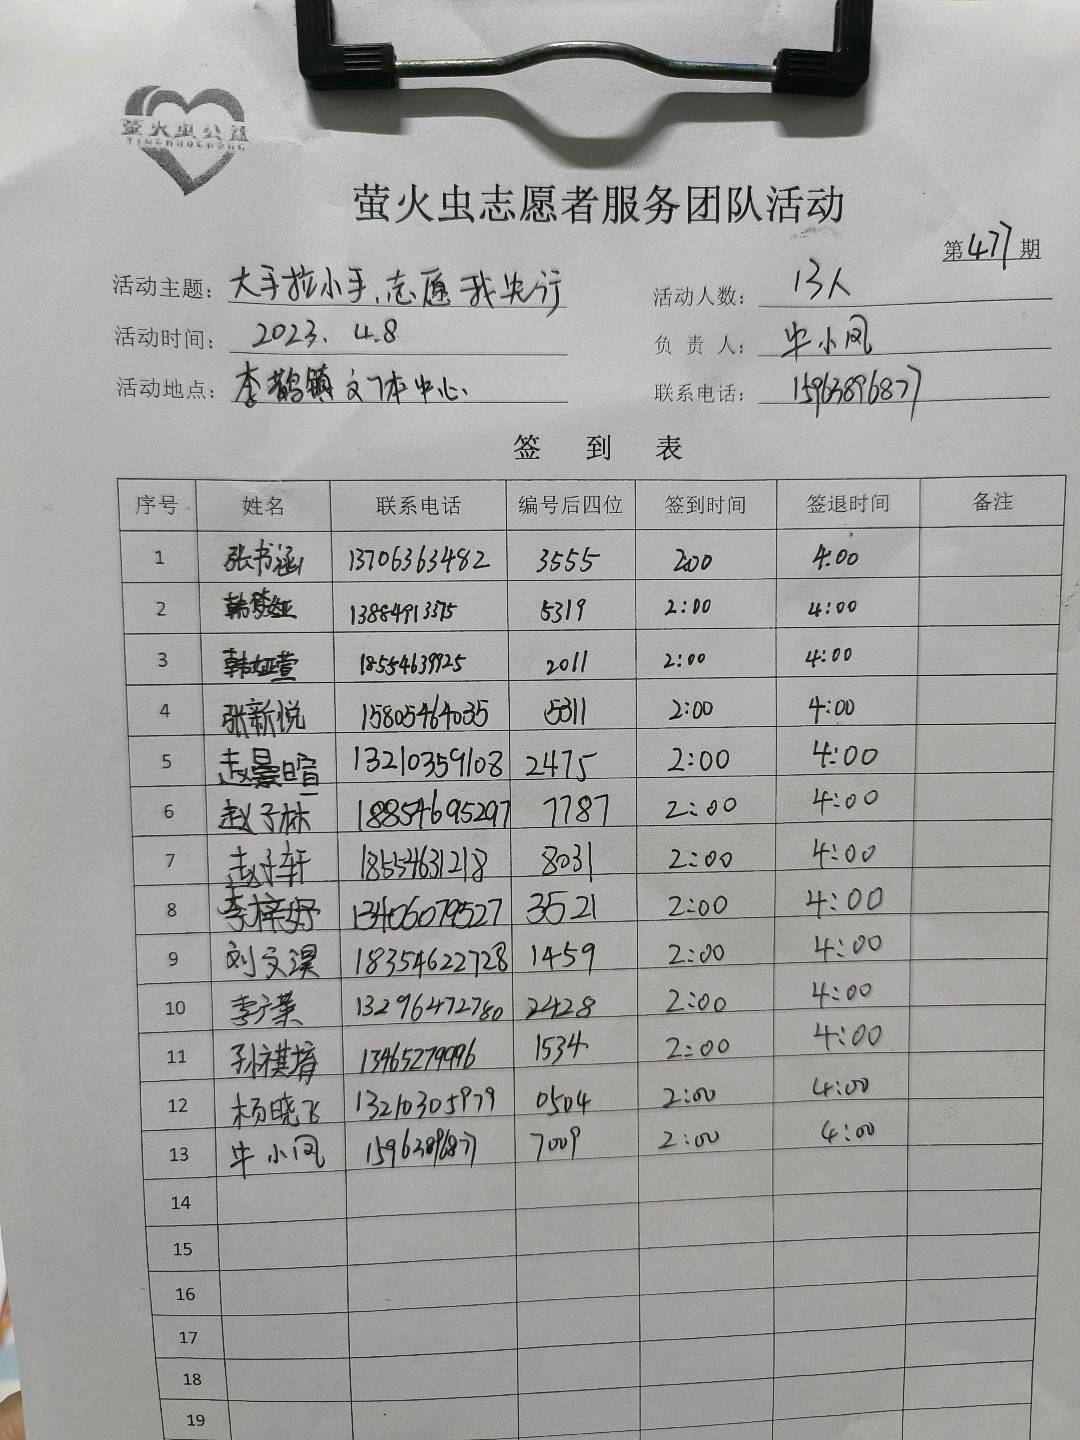 萤火虫公益
YINGHUOCHONG
萤火虫志愿者服务团队活动
第477期
活动主题: 大手拉小手、志愿我先行 活动人数: 13人
活动时间: 2023.4.8 负责人: 牛小凤
活动地点: 李鹊镇文体中心 联系电话: 15963896877
签到表
序号 姓名 联系电话 编号后四位 签到时间 签退时间 备注
1 张书涵 13706363482 3555 2:00 4:00
2 韩梦娅 13884913375 5319 2:00 4:00
3 韩娅萱 18554639925 2011 2:00 4:00
4 张新悦 15805464035 5311 2:00 4:00
5 赵景暄 13210359108 2475 2:00 4:00
6 赵子林 18854695297 7787 2:00 4:00
7 赵子轩 18554631218 8031 2:00 4:00
8 李梓妤 13406079527 3521 2:00 4:00
9 刘文淏 18354622728 1459 2:00 4:00
10 李广荣 13296472780 2428 2:00 4:00
11 孙祺堉 13465279996 1534 2:00 4:00
12 杨晓飞 13210305979 0504 2:00 4:00
13 牛小凤 15963896877 7009 2:00 4:00
14
15
16
17
18
19